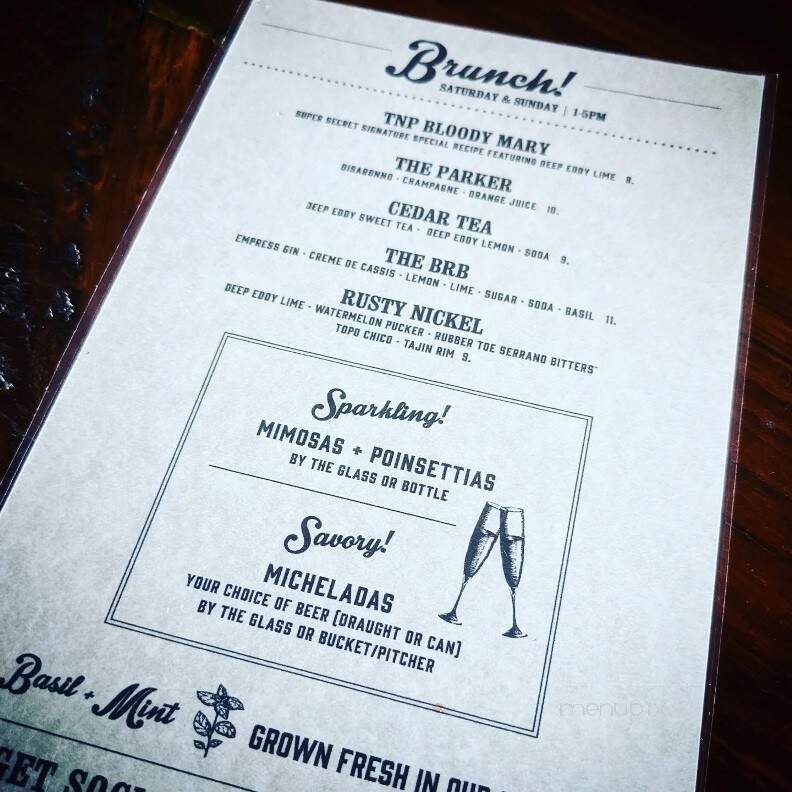 Brunch!
SATURDAY & SUNDAY | 1-5PM
TNP BLOODY MARY
SUPER SECRET SIGNATURE SPECIAL RECIPE FEATURING DEEP EDDY LIME 9.
THE PARKER
DISARONNO - CHAMPAGNE - ORANGE JUICE 10.
CEDAR TEA
DEEP EDDY SWEET TEA - DEEP EDDY LEMON - SODA 9.
THE BRB
EMPRESS GIN - CREME DE CASSIS - LEMON - LIME - SUGAR - SODA - BASIL 11.
RUSTY NICKEL
DEEP EDDY LIME - WATERMELON PUCKER - RUBBER TOE SERRANO BITTERS*
TOPO CHICO - TAJIN RIM 9.
Sparkling!
MIMOSAS + POINSETTIAS
BY THE GLASS OR BOTTLE
Savory!
MICHELADAS
YOUR CHOICE OF BEER (DRAUGHT OR CAN)
BY THE GLASS OR BUCKET/PITCHER
Basil + Mint GROWN FRESH IN OUR
GET SOCI
menupix